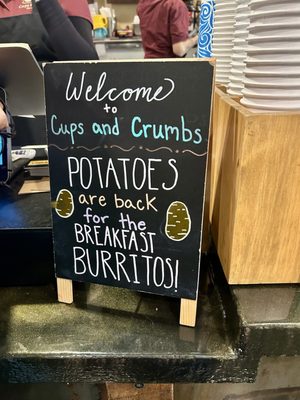 Welcome
to
Cups and Crumbs
POTATOES
are back
for the
BREAKFAST
BURRITOS!